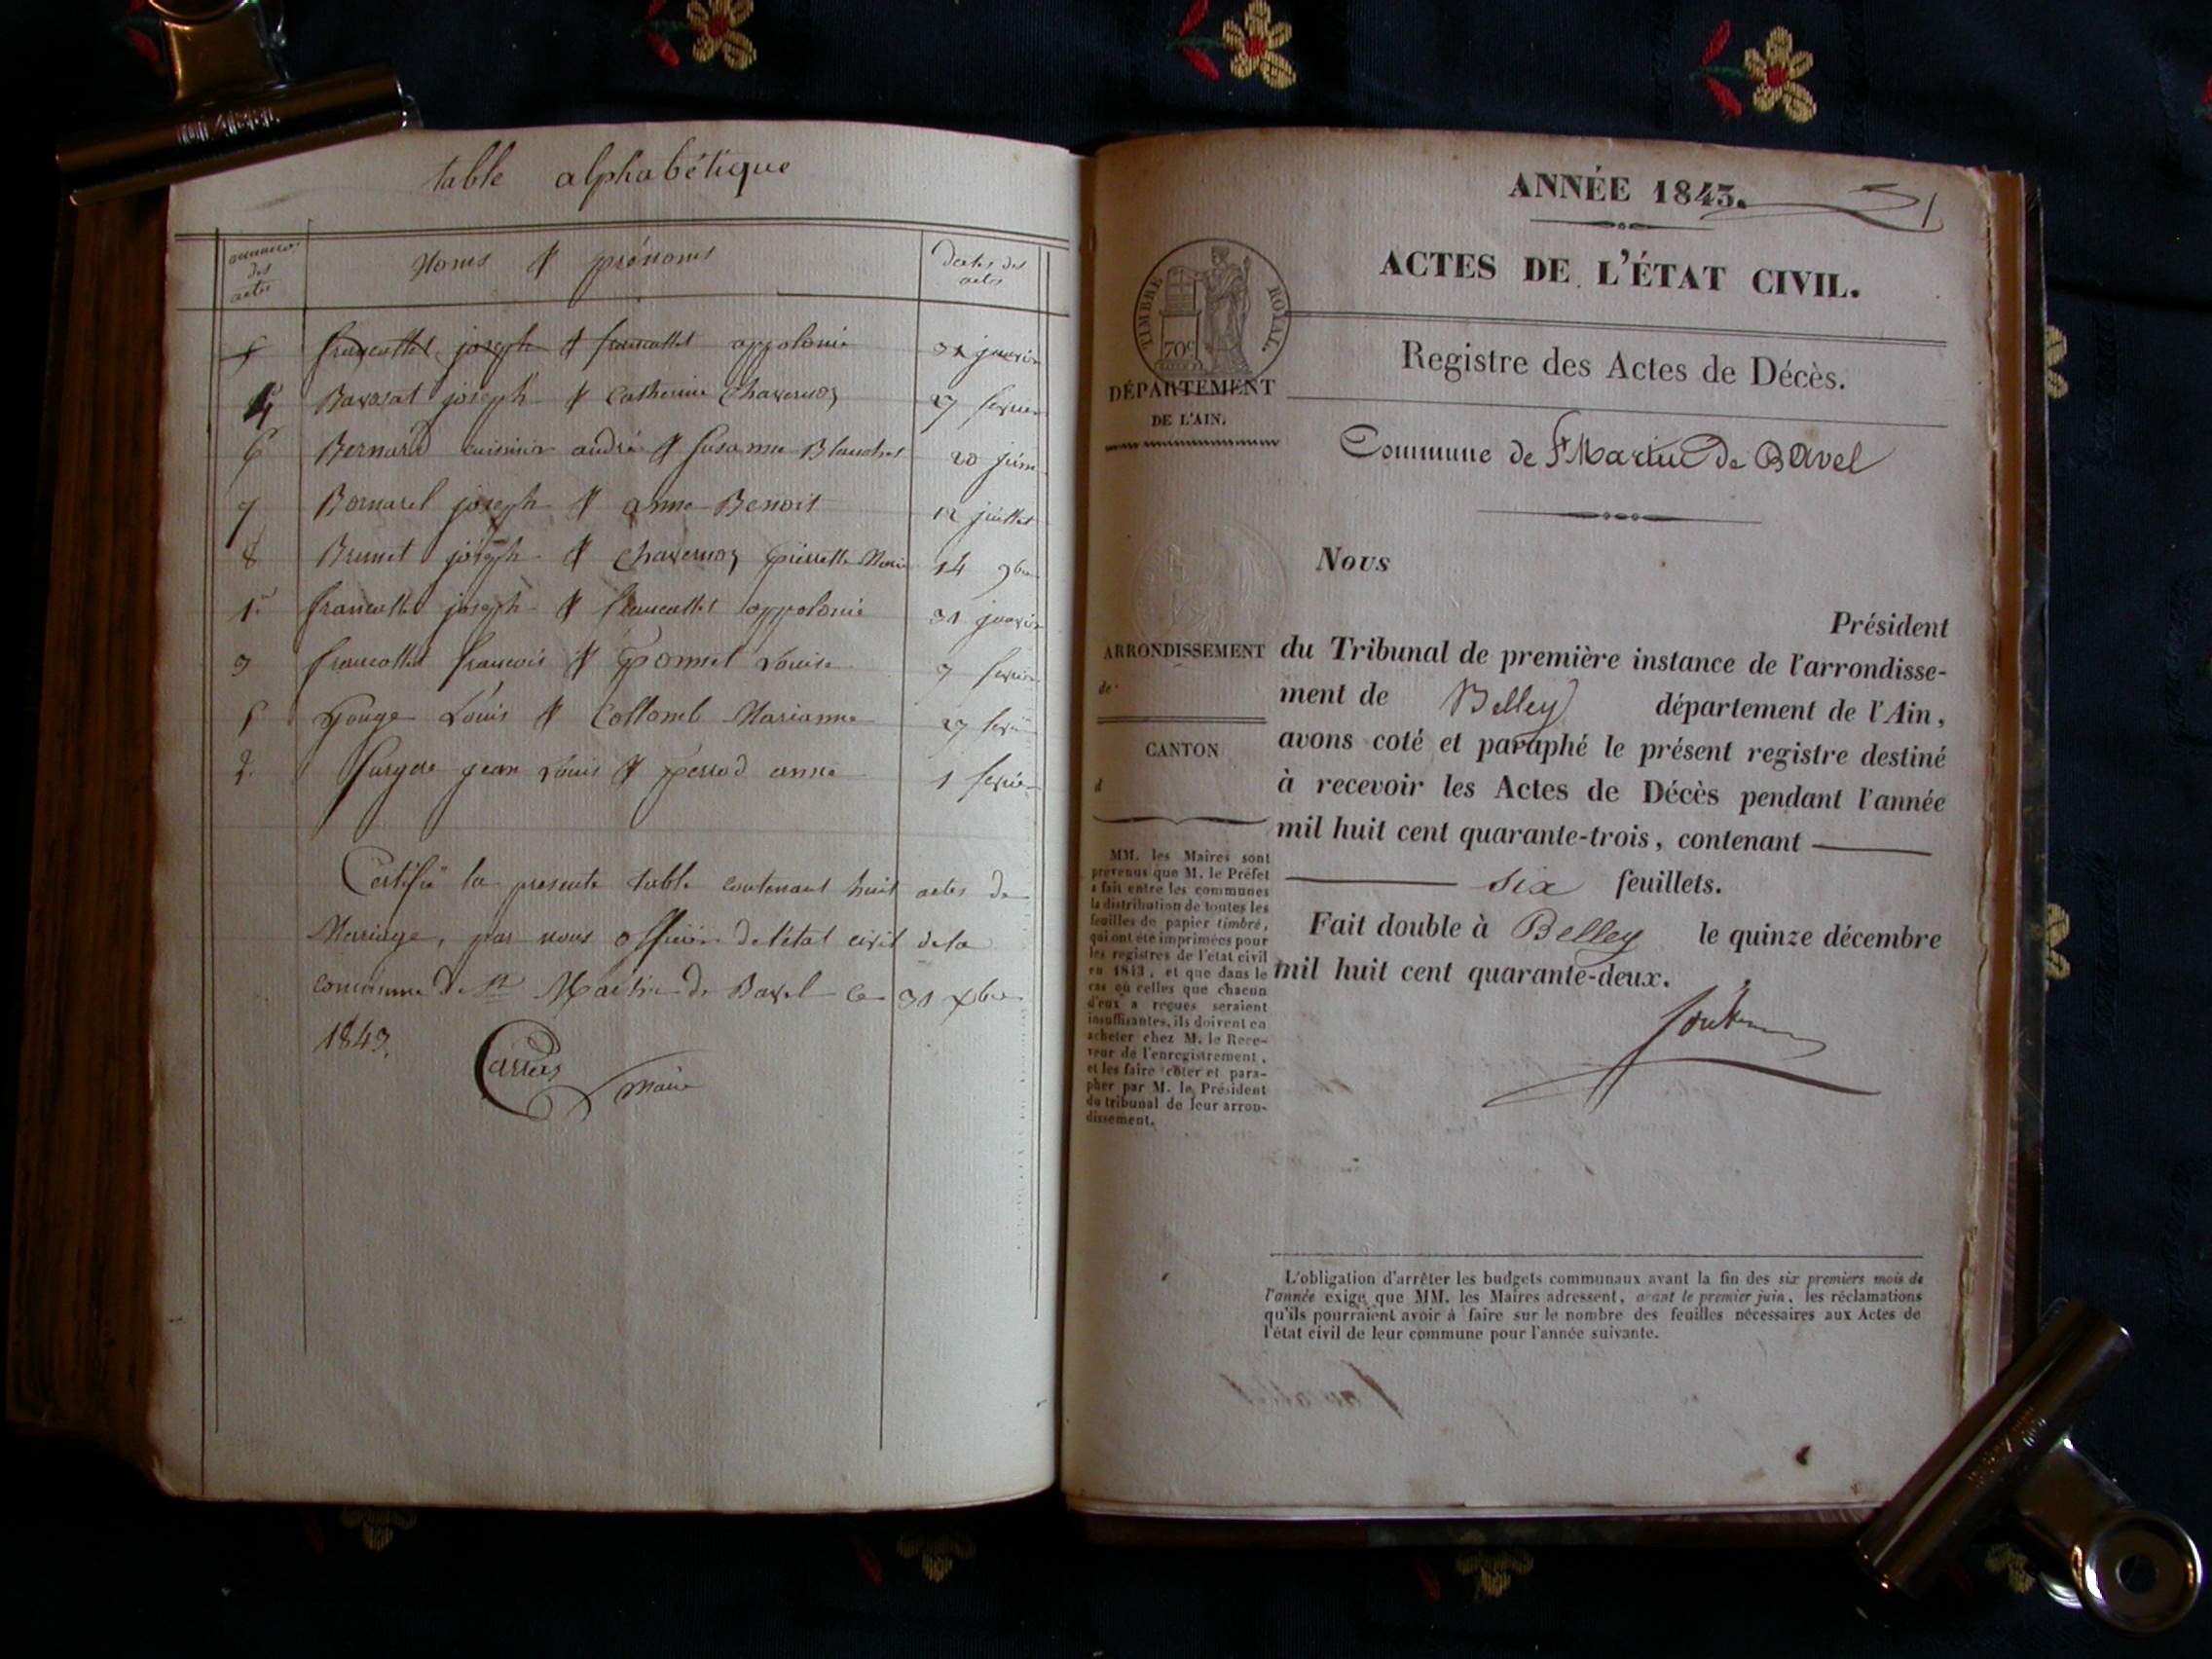 table alphabétique
numeros des actes
Noms & prénoms
dates des actes
francollet joseph & francollet appolonie 31 janvier
4 Bavosat joseph & Catherine Chavernoz 27 fevrier
6 Bernard cuisinier andré & Susanne Blanchet 20 juin
7 Bornarel joseph & anne Benoit 12 juillet
8 Brunet joseph & Chavernoz pierrette Marie 14 9bre
1 francollet joseph & francollet appolonie 31 janvier
3 francollet francois & ponnet Louise 7 fevrier
5 Gouge Louis & Collomb Marianne 27 fevrier
2 jean Louis & perrod anne 1 fevrier
Certifié la presente table contenant huit actes de
Mariage, par nous officier de l'état civil de la
commune de St Martin de Bavel ce 31 xbre
1843.
maire
ANNÉE 1843.
1
ACTES DE L'ÉTAT CIVIL.
TIMBRE ROYAL.
70c
Registre des Actes de Décès.
DÉPARTEMENT
DE L'AIN.
Commune de St Martin de Bavel
Nous
Président
ARRONDISSEMENT
de
CANTON
d
du Tribunal de première instance de l'arrondisse-
ment de Belley département de l'Ain,
avons coté et paraphé le présent registre destiné
à recevoir les Actes de Décès pendant l'année
mil huit cent quarante-trois, contenant
six feuillets.
Fait double à Belley le quinze décembre
mil huit cent quarante-deux.
MM. les Maires sont
prévenus que M. le Préfet
a fait entre les communes
la distribution de toutes les
feuilles de papier timbré,
qui ont été imprimées pour
les registres de l'état civil
en 1843, et que dans le
cas où celles que chacun
d'eux a reçues seraient
insuffisantes, ils doivent en
acheter chez M. le Rece-
veur de l'enregistrement,
et les faire coter et para-
pher par M. le Président
du tribunal de leur arron-
dissement.
L'obligation d'arrêter les budgets communaux avant la fin des six premiers mois de
l'année exige que MM. les Maires adressent, avant le premier juin, les réclamations
qu'ils pourraient avoir à faire sur le nombre des feuilles nécessaires aux Actes de
l'état civil de leur commune pour l'année suivante.